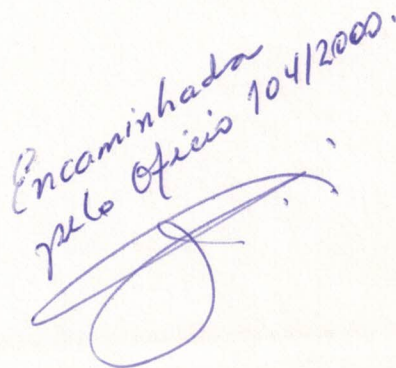 Encaminhada
pelo Ofício 104/2000.